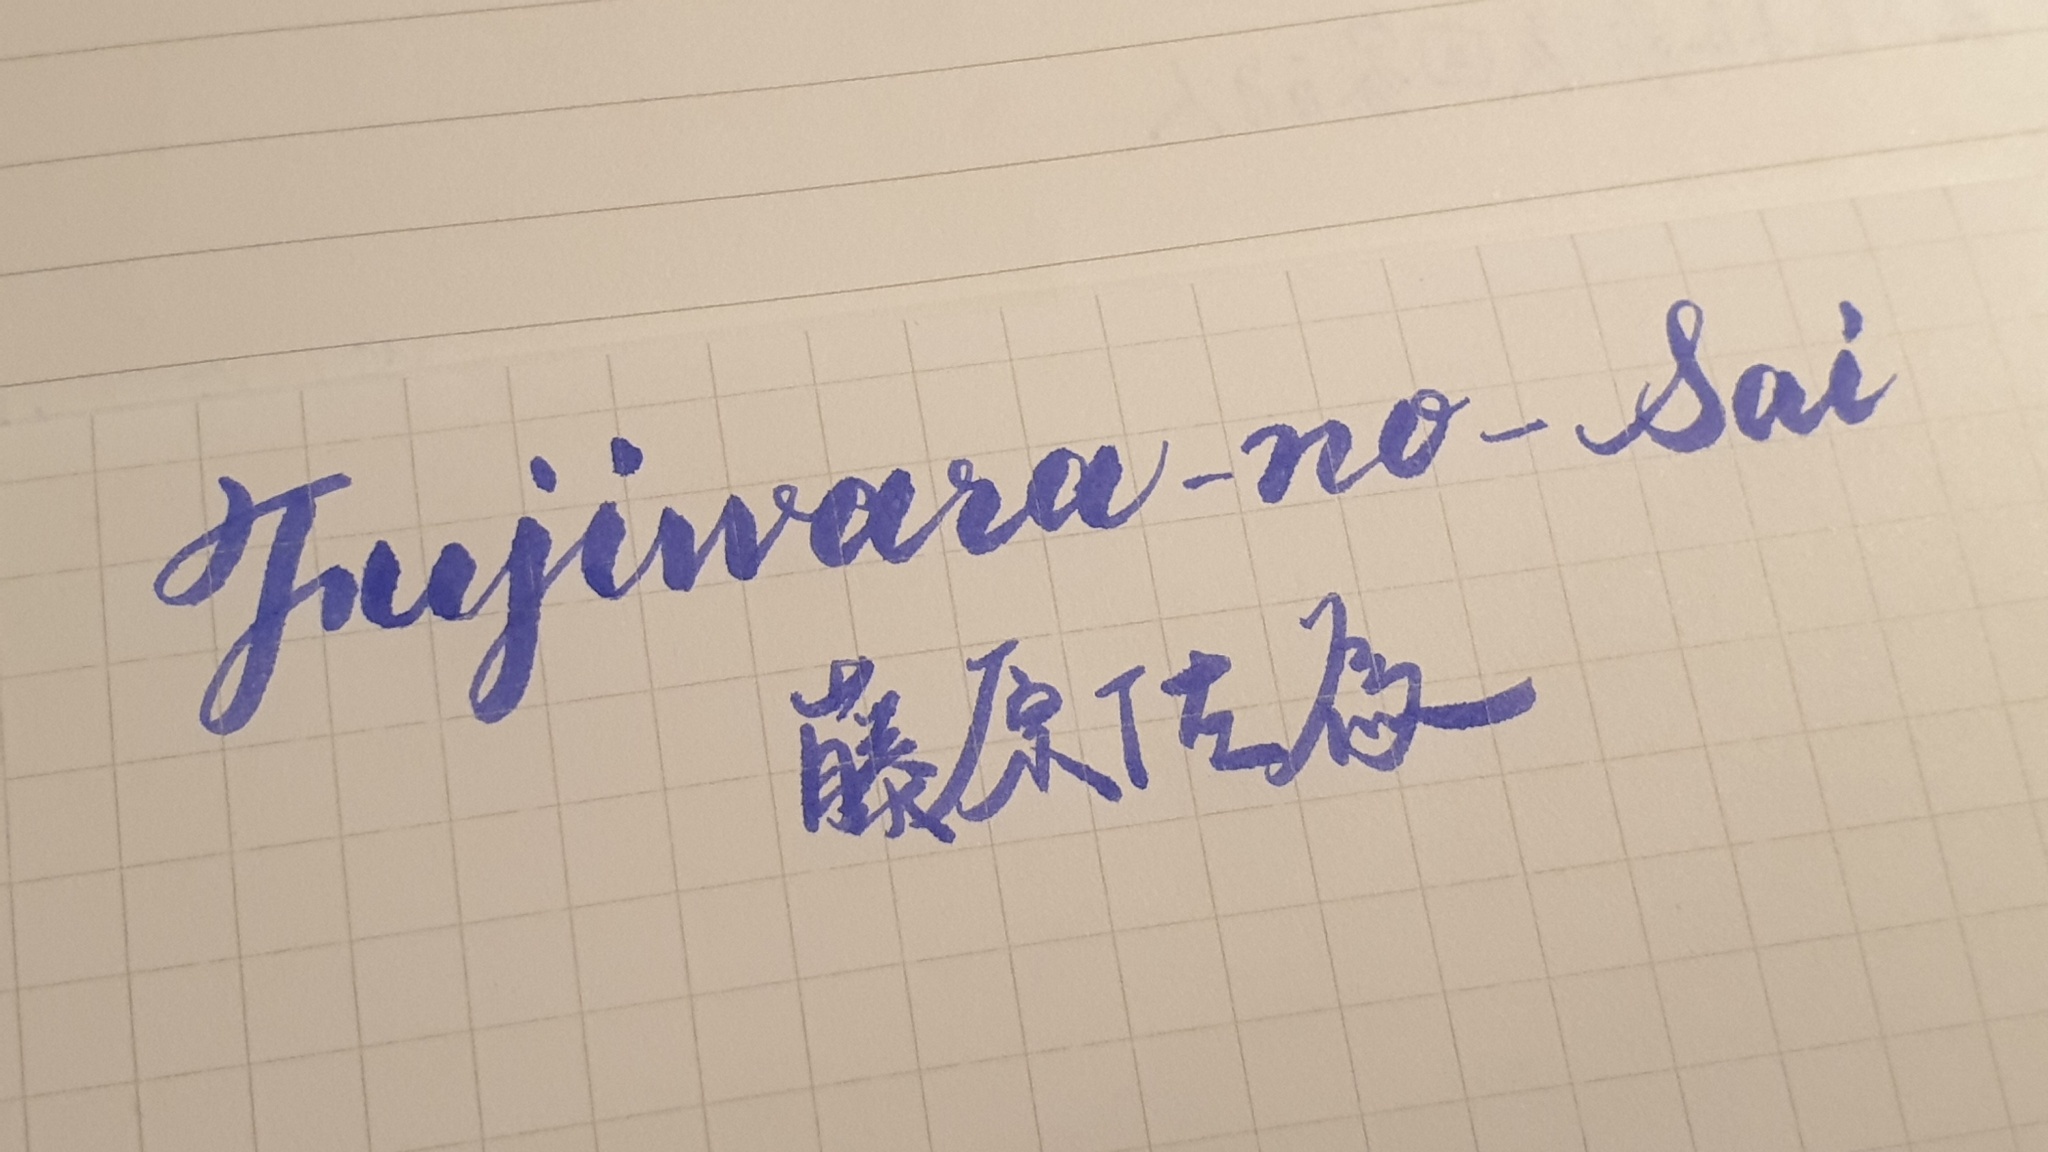 Fujiwara-no-Sai
藤原佐為